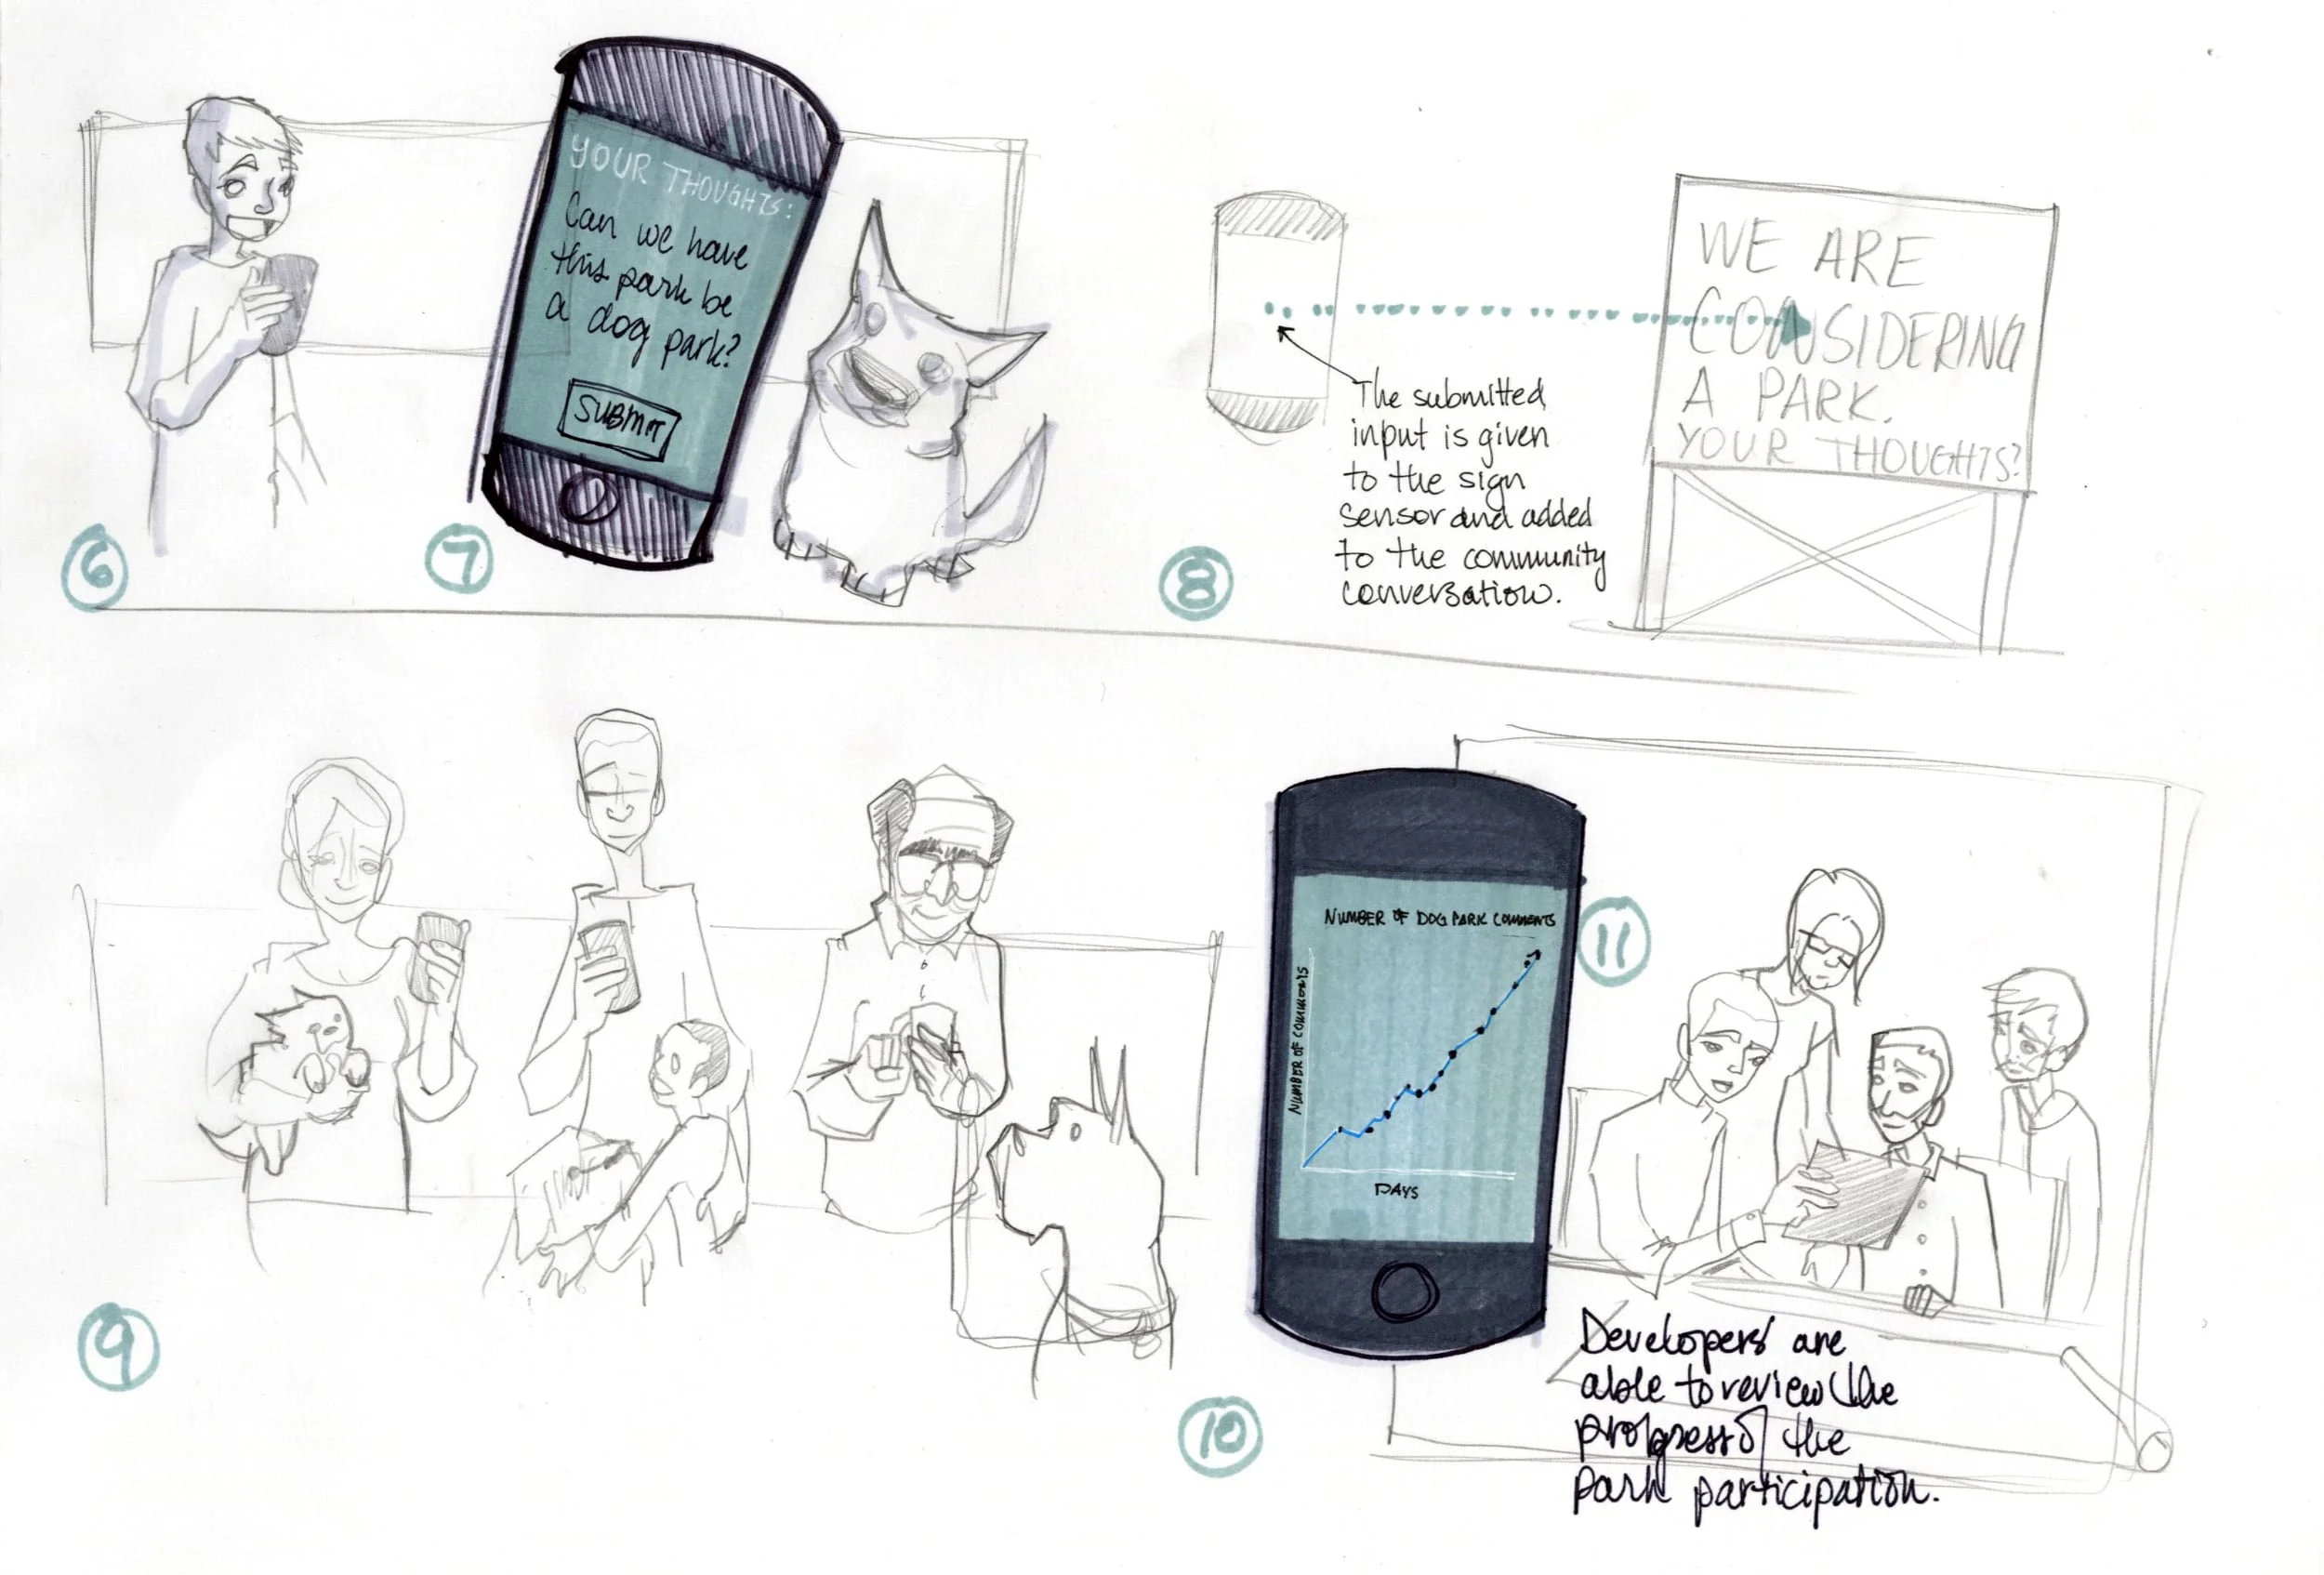 YOUR THOUGHTS:
Can we have
this park be
a dog park?
SUBMIT
6
7
8
The submitted
input is given
to the sign
sensor and added
to the community
conversation.
WE ARE
CONSIDERING
A PARK.
YOUR THOUGHTS?
9
NUMBER OF DOG PARK COMMENTS
NUMBER OF COMMENTS
DAYS
10
11
Developers are
able to review the
progress of the
park participation.